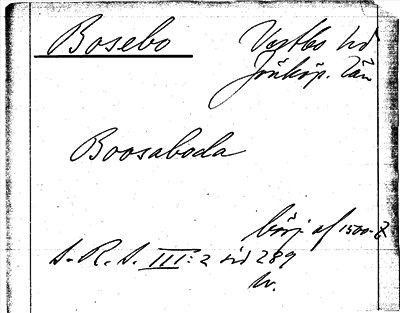 Bosebo
Vestbo hd
Jönköp. län
Boosaboda
börj. af 1500-t
S.R.S. III:2 sid 289